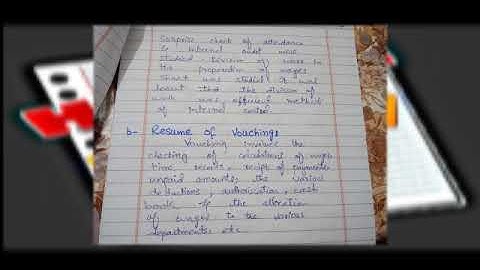 Surprise check of attendance
& internal audit was
studied. Review of work in
the preparation of wages
Sheet was studied. It was
learnt that the division of
work was efficient method
of internal control.
b- Resume of Vouching:
Vouching involve the
checking of calculation of wages
time records, receipt of payments
unpaid amounts, the various
deductions, authorisation, cash
book of the allocation
of wages to the various
departments etc.